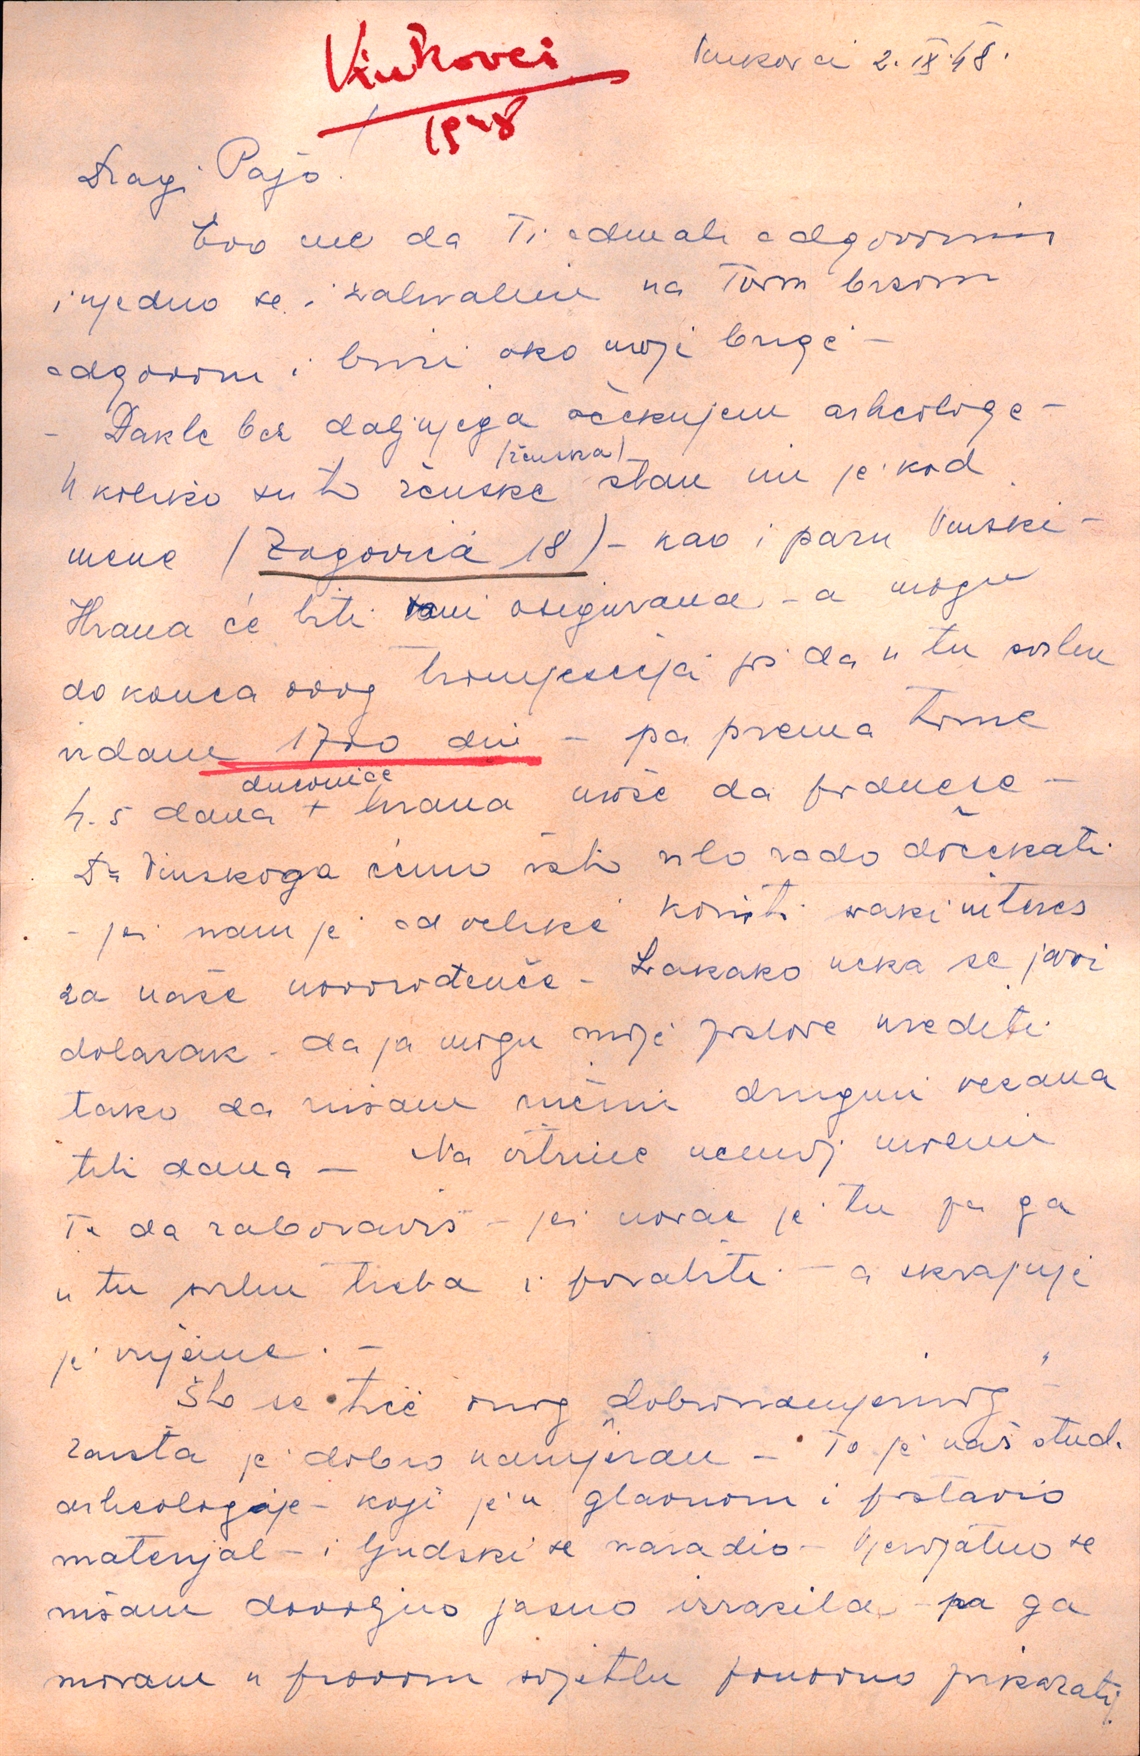 Vinkovci
1948
Vinkovci 2. IX. 48.
Dragi Pajo!
Evo me da Ti odmah odgovorim
i ujedno se i zahvalim na Tvom brzom
odgovoru i brizi oko moje brige –
– Dakle bez daljnjega očekujem arheologe –
(ženska)
Ukoliko su to ženske stan im je kod
mene (Zagorića 18) – kao i paru Vinski –
Hrana će biti osigurana – a mogu
do konca ovog tromjesečja još da u tu svrhu
izdam 1700 din – pa prema tome
dnevnice
4-5 dana + hrana može da podnese –
Dr Vinskoga ćemo isto vrlo rado dočekati
– jer nam je od velike koristi svaki interes
za naše novorođenče – Svakako neka se javi
dolazak – da ja mogu moje poslove urediti
tako da nisam ničim drugim vezana
tih dana – Na vitrine nemoj molim
Te da zaboraviš – jer novac je tu pa ga
u tu svrhu treba i potrošiti – a skrajnje
je vrijeme. –
Što se tiče onog „dobronamjernog"
zaista je dobro namjeran – To je naš stud.
arheologije – koji je u glavnom i postavio
materijal – i ljudski se naradio – Vjerojatno se
nisam dovoljno jasno izrazila – pa ga
moram u pravom svjetlu ponovno prikazati.